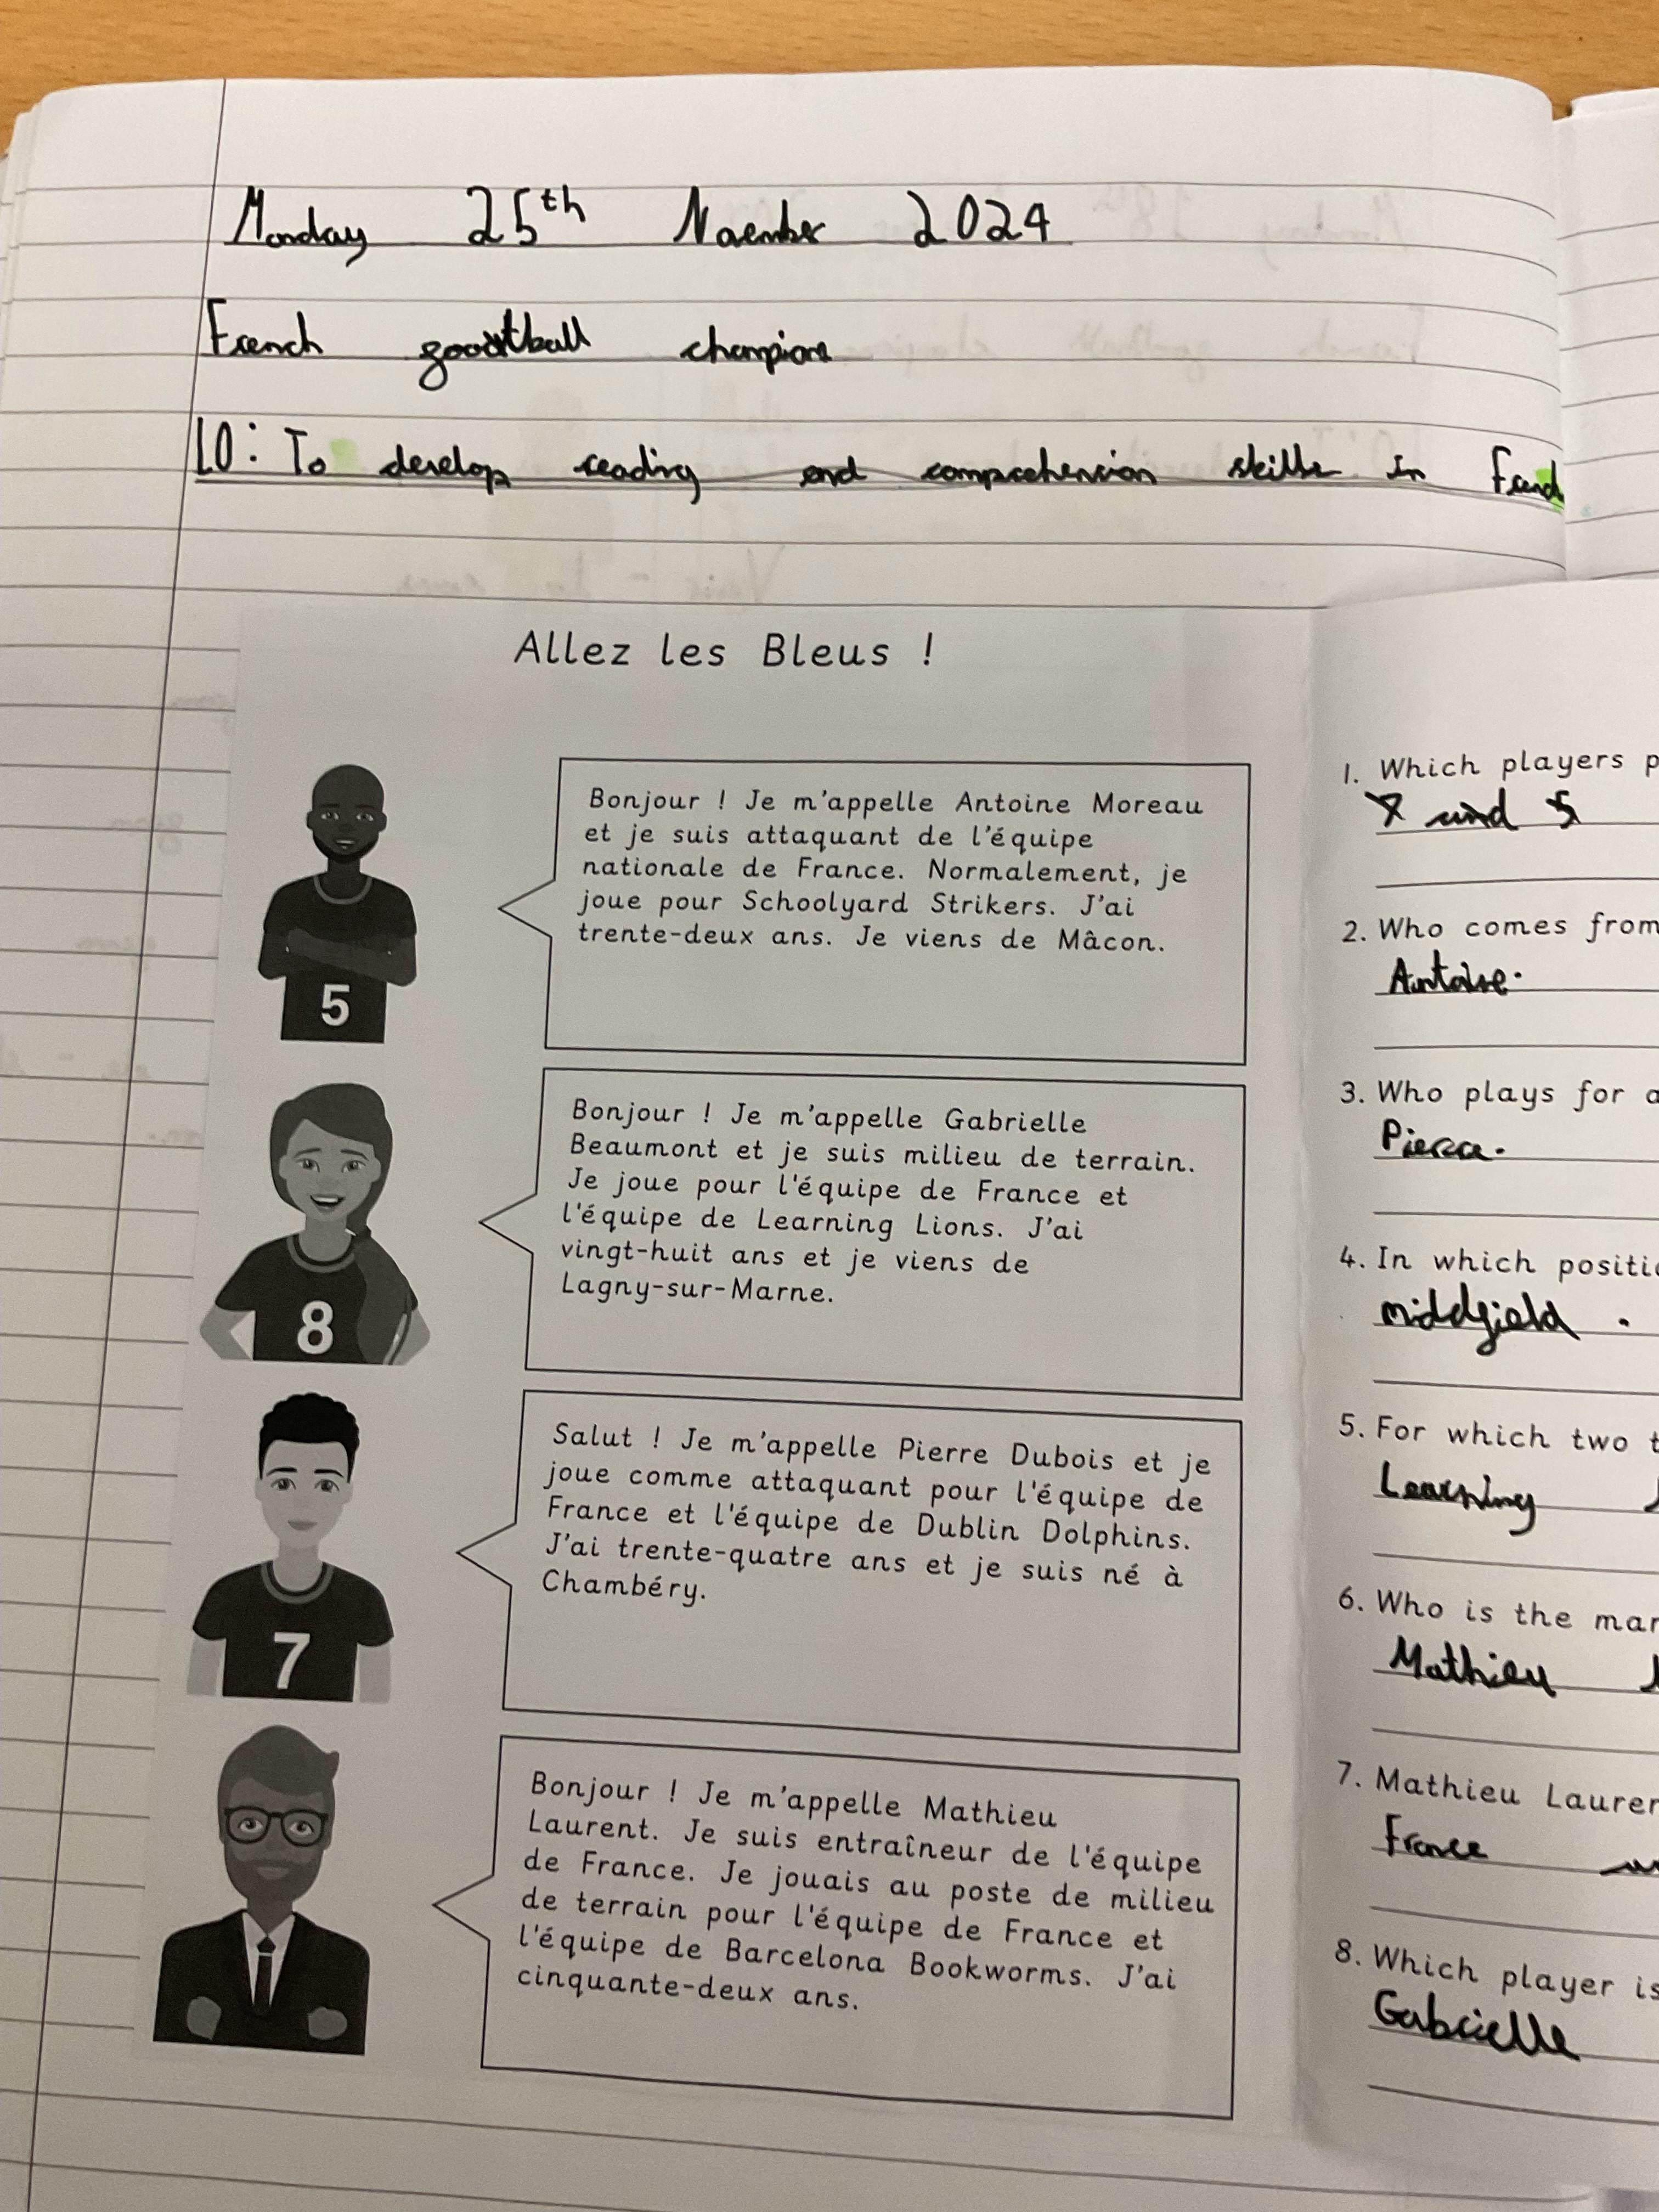 Monday 25th Naember 2024
French gootball champions
LO: To develop reading and comprehension skills in
Allez les Bleus !
Bonjour ! Je m'appelle Antoine Moreau
et je suis attaquant de l'équipe
nationale de France. Normalement, je
joue pour Schoolyard Strikers. J'ai
trente-deux ans. Je viens de Mâcon.
5
Bonjour ! Je m'appelle Gabrielle
Beaumont et je suis milieu de terrain.
Je joue pour l'équipe de France et
l'équipe de Learning Lions. J'ai
vingt-huit ans et je viens de
Lagny-sur-Marne.
8
Salut ! Je m'appelle Pierre Dubois et je
joue comme attaquant pour l'équipe de
France et l'équipe de Dublin Dolphins.
J'ai trente-quatre ans et je suis né à
Chambéry.
7
Bonjour ! Je m'appelle Mathieu
Laurent. Je suis entraîneur de l'équipe
de France. Je jouais au poste de milieu
de terrain pour l'équipe de France et
l'équipe de Barcelona Bookworms. J'ai
cinquante-deux ans.
1. Which players p
7 and 5
2. Who comes from
Antoine.
3. Who plays for a
Pierre.
4. In which positi
middfield .
5. For which two t
Learning
6. Who is the man
Mathieu
7. Mathieu Lauren
France
8. Which player is
Gabrielle